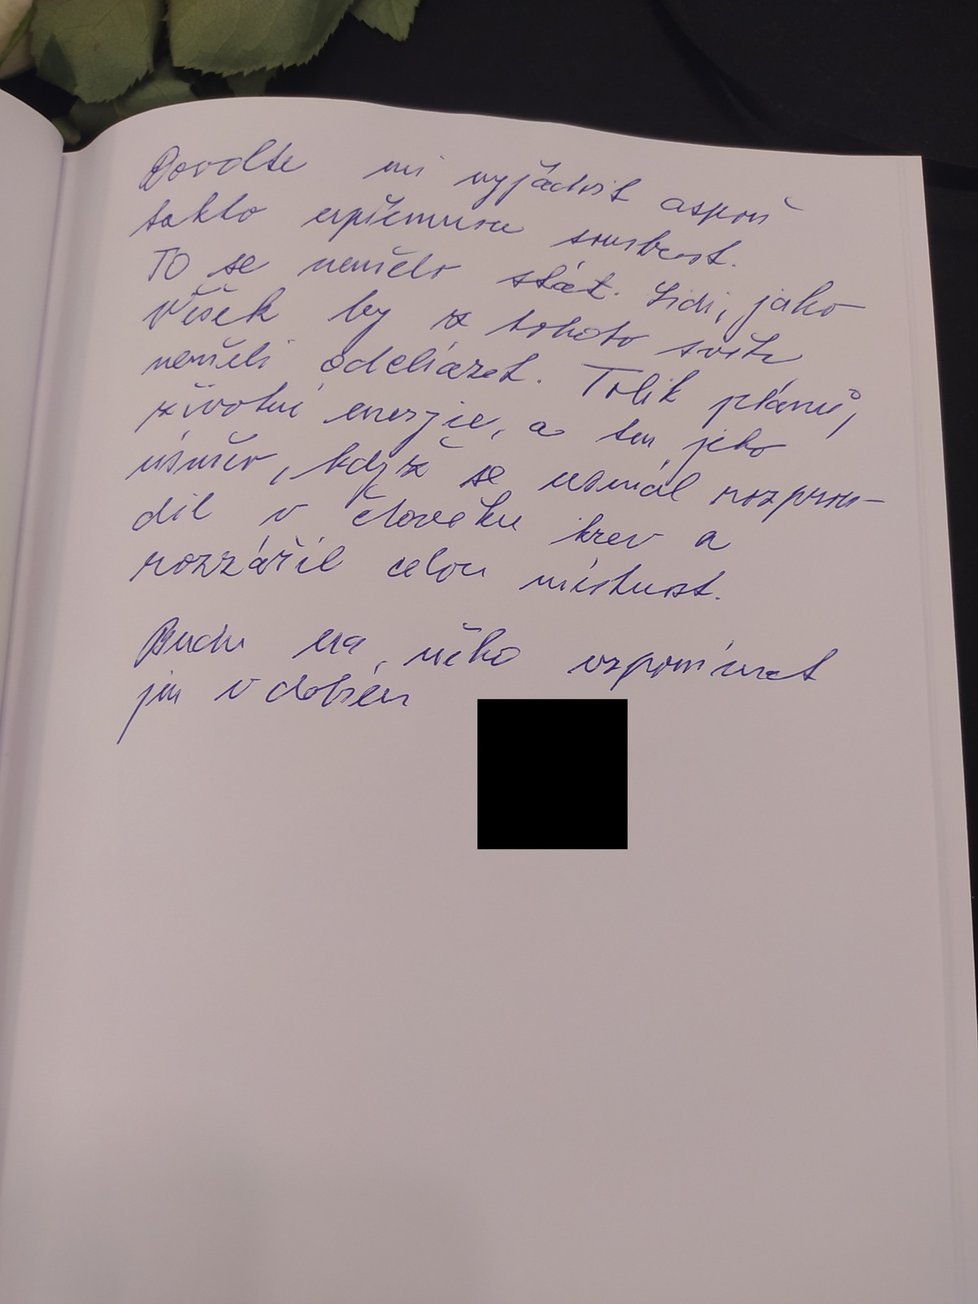 Dovolte mi vyjádřit aspoň
takto upřímnou soustrast.
To se nemělo stát. Lidi, jako
Víšek by z tohoto světa
neměli odcházet. Tolik plánů,
životní energie, a ten jeho
úsměv, když se usmál rozprou-
dil v člověku krev a
rozzářil celou místnost.
Budu na něho vzpomínat
jen v dobrém